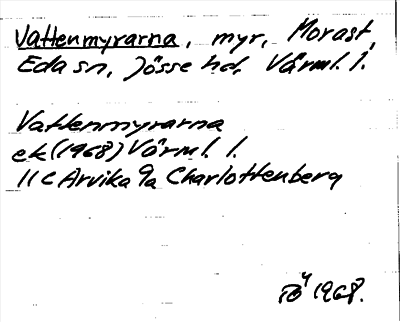 Vattenmyrarna, myr, Morast,
Eda sn, Jösse hd, Värml. l.
Vattenmyrarna
ek (1968) Värml. l.
11 c Arvika 9a Charlottenberg
1968.